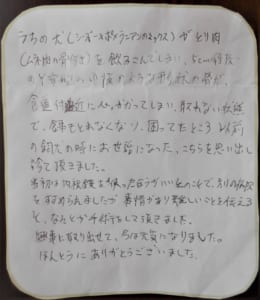 うちの犬(シーズーとポメラニアンのミックス)がとり肉
(骨付き)を飲みこんでしまい、5cm程度
の形状の骨が、
食道付近にひっかかってしまい、取れない状態
で、餌もとれなくなり、困ってたところ以前
の飼犬の時にお世話になった、こちらを思い出し
診て頂きました。
当初は内視鏡を使ったほうがいいとのことで、別の病院
をすすめられましたが事情があり難しいことを伝える
と、なんとか手術をして頂きました。
無事に取り出せて、今は元気になりました。
ほんとうにありがとうございました。